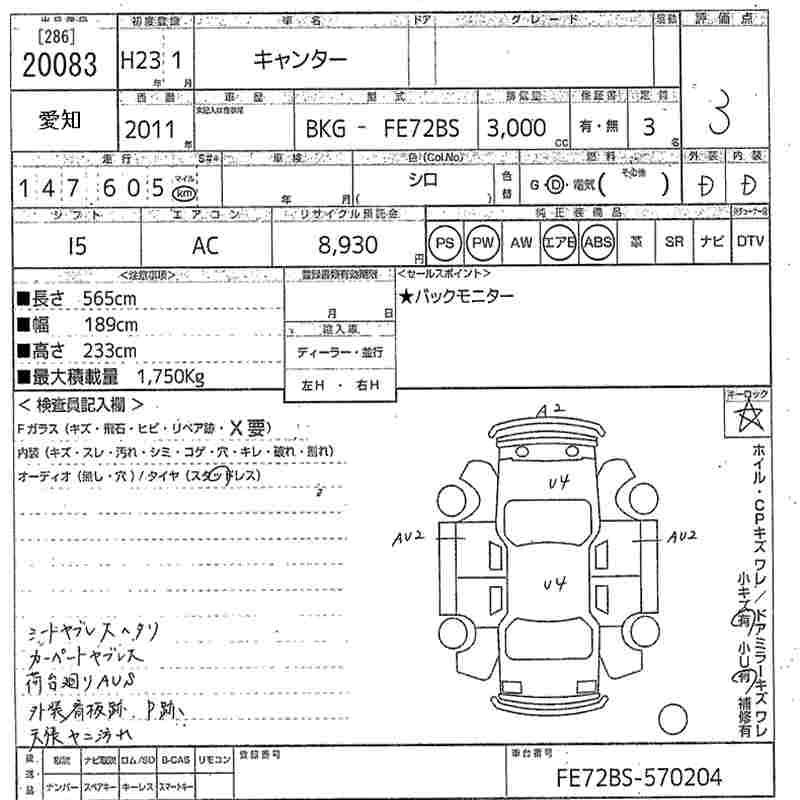 [286]
20083
初度登録 車名 ドア グレード 評価点
H23 年 1 月 キャンター
3
愛知
車歴 型式 排気量 定員
2011 年 BKG - FE72BS 3,000 cc 有・無 3 名
走行 車検 色(Col.No) 燃料 外装 内装
147605 マイル km 年 月 シロ ( ) 色替 G・D・電気( その他 ) D D
シフト エアコン リサイクル預託金 純正装備品
I5 AC 8,930 円 PS PW AW エアB ABS 革 SR ナビ DTV
<注意事項> 登録書類有効期限 <セールスポイント>
■長さ 565cm
■幅 189cm
■高さ 233cm
■最大積載量 1,750Kg
月 日
輸入車
ディーラー・並行
左H ・ 右H
★バックモニター
＜ 検査員記入欄 ＞
Fガラス（キズ・飛石・ヒビ・リペア跡・X要）
内装（キズ・スレ・汚れ・シミ・コゲ・穴・キレ・破れ・割れ）
オーディオ（無し・穴）/ タイヤ（スタッドレス）
キーロック
A2
U4
AU2
AU2
U4
ホイル・CPキズ ワレ / ドアミラーキズ ワレ
小キズ有 小U有 補修有
シートヤブレスヘタリ
カーペートヤブレス
荷台廻りAUS
外装看板跡、P跡、
天張ヤニ汚れ
後送品 取説 ナビ取説 ロム/SD B-CAS リモコン
ナンバー スペアキー キーレス スマートキー
登録番号
車台番号
FE72BS-570204